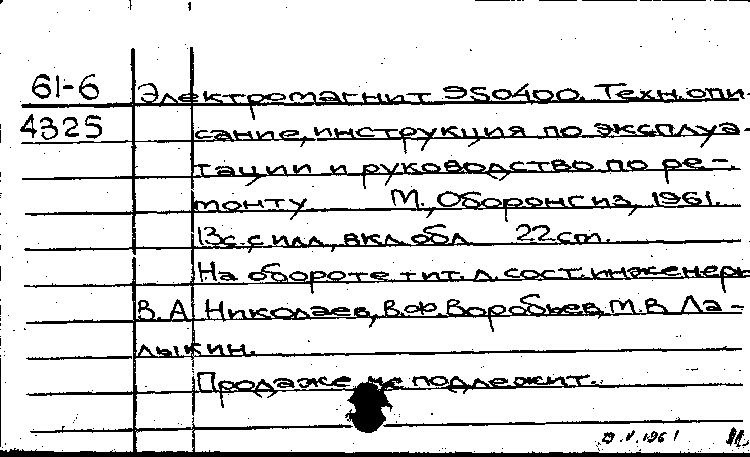 61-6 Электромагнит Э50400. Техн. опи-
4325 сание, инструкция по эксплуа-
тации и руководство по ре-
монту М., Оборонгиз, 1961.
13с. с илл., вкл. обл. 22 см.
На обороте тит. л. сост. инженеры
В. А. Николаев, В. Ф. Воробьев, М. В. Ла-
лыкин.
Продаже не подлежит.
V. 1961